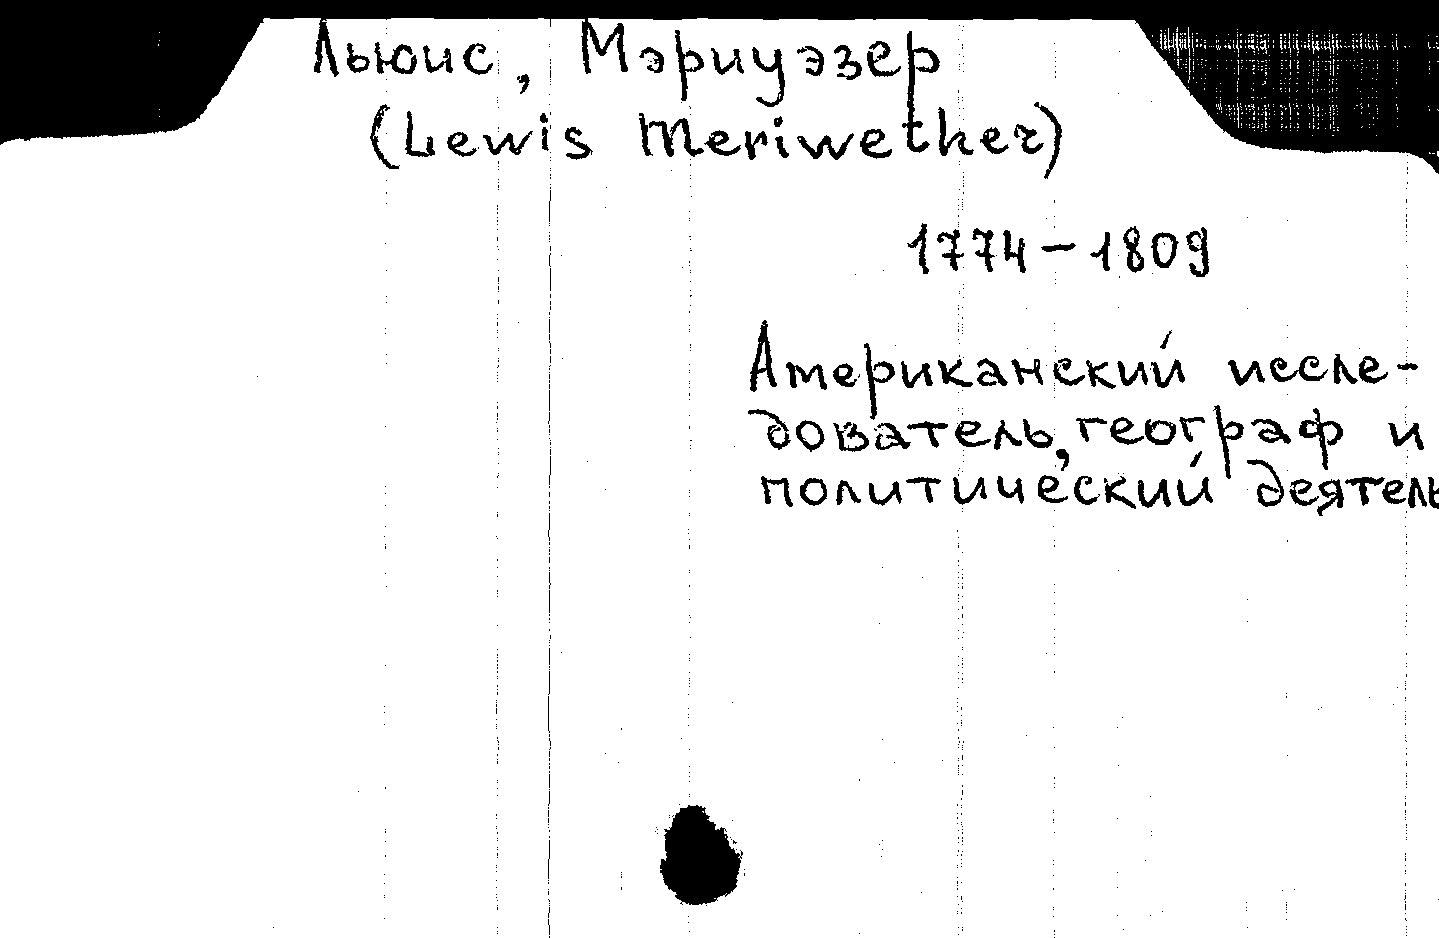 Льюис, Мэриуэзер
(Lewis Meriwether)
1774-1809
Американский иссле-
дователь, географ и
политический деятель